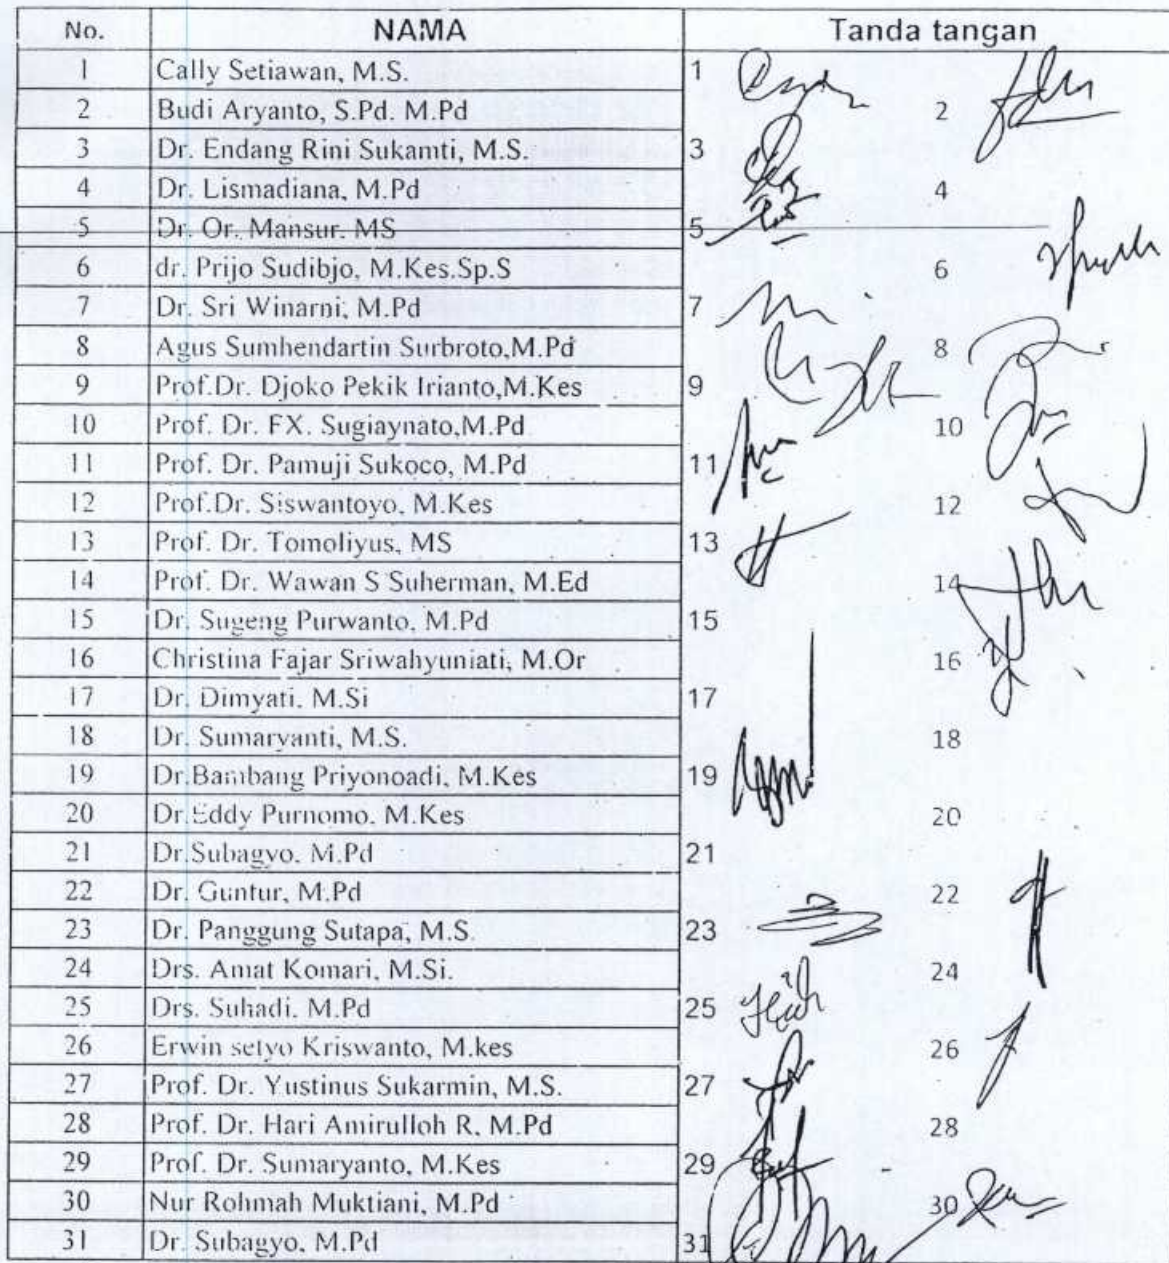 No. NAMA Tanda tangan
1 Cally Setiawan, M.S. 1
2 Budi Aryanto, S.Pd. M.Pd 2
3 Dr. Endang Rini Sukamti, M.S. 3
4 Dr. Lismadiana, M.Pd 4
5 Dr. Or. Mansur. MS 5
6 dr. Prijo Sudibjo, M.Kes.Sp.S 6
7 Dr. Sri Winarni, M.Pd 7
8 Agus Sumhendartin Surbroto,M.Pd 8
9 Prof.Dr. Djoko Pekik Irianto,M.Kes 9
10 Prof. Dr. FX. Sugiaynato,M.Pd 10
11 Prof. Dr. Pamuji Sukoco, M.Pd 11
12 Prof.Dr. Siswantoyo, M.Kes 12
13 Prof. Dr. Tomoliyus, MS 13
14 Prof. Dr. Wawan S Suherman, M.Ed 14
15 Dr. Sugeng Purwanto, M.Pd 15
16 Christina Fajar Sriwahyuniati, M.Or 16
17 Dr. Dimyati. M.Si 17
18 Dr. Sumaryanti, M.S. 18
19 Dr.Bambang Priyonoadi, M.Kes 19
20 Dr.Eddy Purnomo. M.Kes 20
21 Dr.Subagyo. M.Pd 21
22 Dr. Guntur, M.Pd 22
23 Dr. Panggung Sutapa, M.S. 23
24 Drs. Amat Komari, M.Si. 24
25 Drs. Suhadi. M.Pd 25
26 Erwin setyo Kriswanto, M.kes 26
27 Prof. Dr. Yustinus Sukarmin, M.S. 27
28 Prof. Dr. Hari Amirulloh R, M.Pd 28
29 Prof. Dr. Sumaryanto, M.Kes 29
30 Nur Rohmah Muktiani, M.Pd 30
31 Dr. Subagyo, M.Pd 31